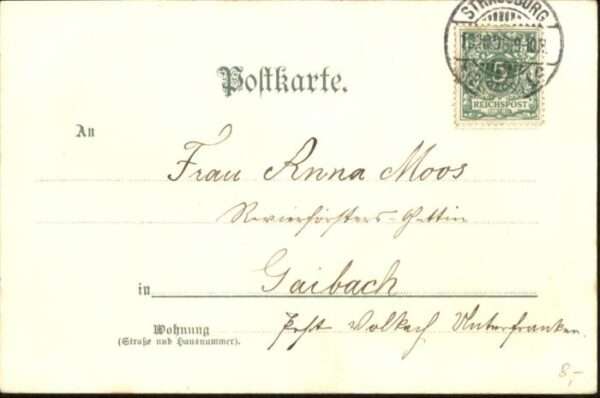 STRASSBURG
5
REICHSPOST
Postkarte.
An
Frau Anna Moos
Revierförsters-Gattin
in Gaibach
Post Volkach Unterfranken
Wohnung
(Straße und Hausnummer).
8,-